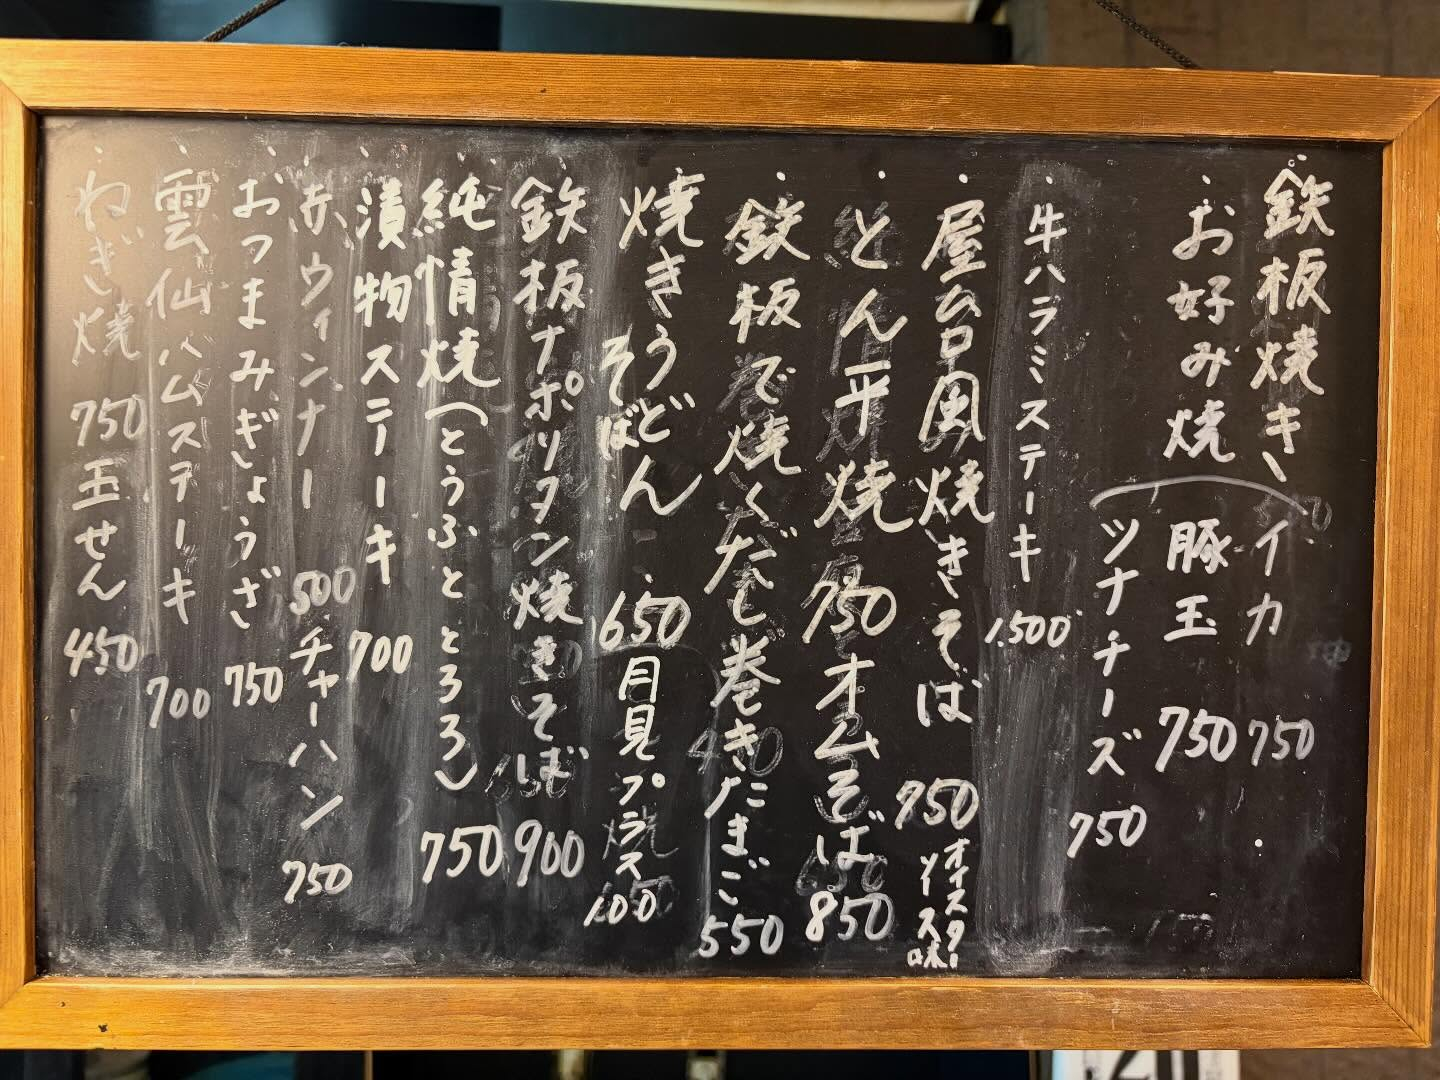 鉄板焼き
お好み焼
イカ 750
豚玉 750
ツナチーズ 750
牛ハラミステーキ 1.500
屋台風焼きそば 750
オイスターソース味
とん平焼 750 オムそば 850
鉄板で焼くだし巻きたまご 550
焼きうどん
そば
650 月見プラス 100
鉄板ナポリタン焼きそば 900
純情焼(とうふととろろ) 750
漬物ステーキ 700
赤ウィンナー 500 チャーハン 750
おつまみぎょうざ 750
雲仙ハムステーキ 700
ねぎ焼 750 玉せん 450